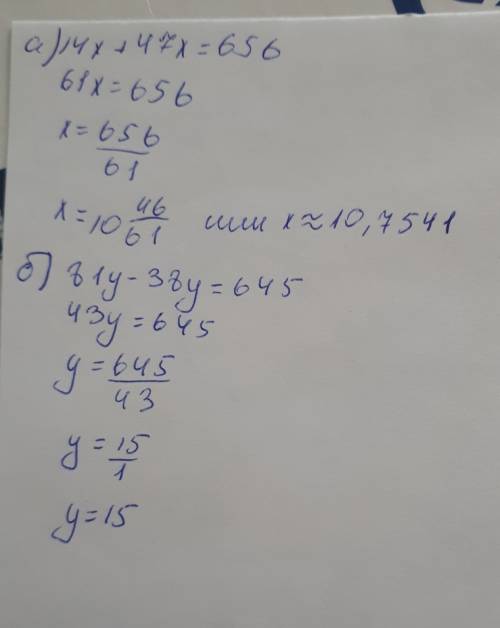 а) 14x + 47x = 656
61x = 656
x = 656/61
x = 10 46/61 или x ≈ 10,7541
б) 81y - 38y = 645
43y = 645
y = 645/43
y = 15/1
y = 15